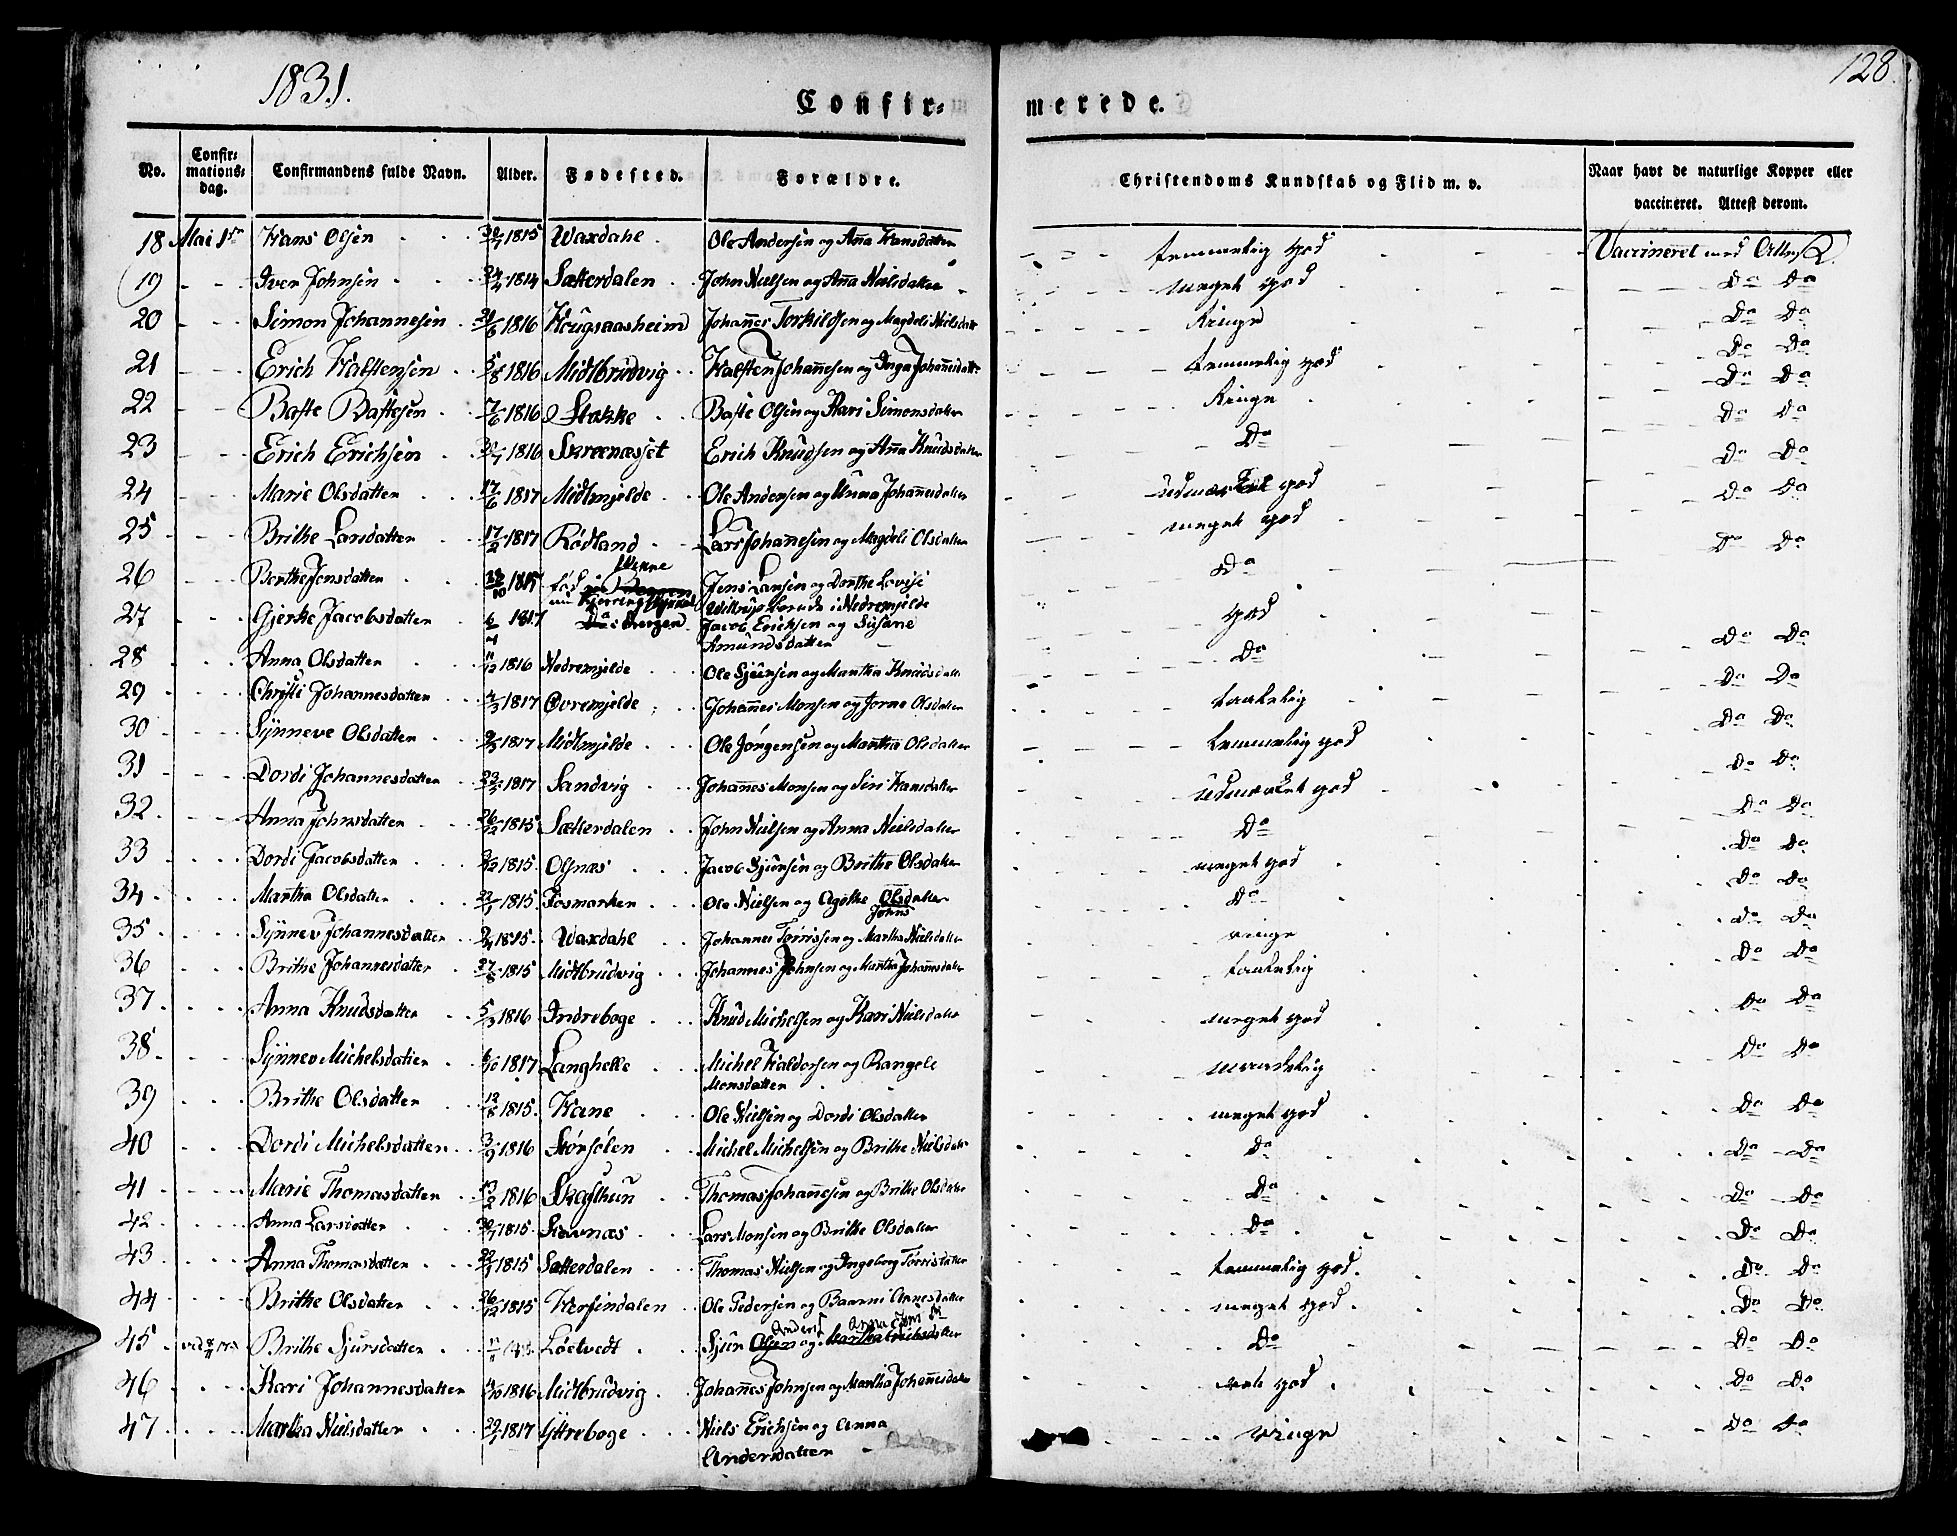 1831.
128.
Confir= merede.
No. Confir= mations= dag. Confirmandens fulde Navn. Alder. Fødested. Forældre. Christendoms Kundskab og Flid m. v. Naar havt de naturlige Kopper eller vaccineret. Attest derom.
18 Mai 1ste Hans Olsen 1815 Waxdahl Ole Andersen og Anna Hansdatter temmelig god Vaccineret med Attest
19 Iver Johnsen 1814 Sætterdalen John Nielsen og Anna Nielsdatter meget god Do Do
20 Simon Johannesen 1816 Hougsaasheim Johannes Torkildsen og Magdeli Nielsdatt Ringe Do Do
21 Erich Halstensen 5/8 1816 Midtbrudvig Halsten Johannesen og Inga Johannesdatt temmelig god Do Do
22 Baste Bastesen 7/6 1816 Stokke Baste Olsen og Kari Simonsdatter Ringe Do Do
23 Erich Erichsen 1816 Skreenæsset Erich Knudsen og Anna Knudsdatter Do Do Do
24 Marie Olsdatter 17/6 1817 Midtmjelde Ole Andersen og Unna Johannesdatter udmærket god Do Do
25 Brithe Larsdatter 17/2 1817 Rødland Lars Johannesen og Magdeli Olsdatter meget god Do Do
26 Berthe Jensdatter 1815 Jens Larsen og Dorthe Lovise Do Do Do
i Nedremjelde
27 Gjerke Jacobsdatter 1817 Do i Bergen Jacob Erichsen og Susane Amundsdatter god
28 Anna Olsdatter 11/12 1816 Nedremjelde Ole Sjursen og Martha Knudsdatt Do Do Do
29 Christi Johannesdatter 1817 Øvremjelde Johannes Monsen og Jorne Olsdatter taalelig Do Do
30 Synneve Olsdatter 1817 Midtmjelde Ole Jørgensen og Martha Olsdatter temmelig god Do Do
31 Dordi Johannesdatter 1817 Sandvig Johannes Monsen og Siri Hansdatter udmærket god Do Do
32 Anna Johnsdatter 26/12 1815 Sætterdalen John Nielsen og Anna Nielsdatter Do Do Do
33 Dordi Jacobsdatter 1815 Olsnæs Jacob Sjursen og Brithe Olsdatter meget god Do Do
34 Martha Olsdatter 1815 Fosmarken Ole Nielsen og Agothe Olsdatter Do Do Do
Johns
35 Synnev Johannesdatter 1815 Waxdahl Johannes Torrissen og Martha Nielsdatter ringe Do Do
36 Brithe Johannesdatter 27/8 1815 Midtbrudvig Johannes Johnsen og Martha Johannesdatter taalelig Do Do
37 Anna Knudsdatter 5/3 1816 Indreboge Knud Michelsen og Kari Nielsdatter meget god Do Do
38 Synnev Michelsdatter 1817 Langhelle Michel Haldorsen og Rangele Monsdatter maadelig Do Do
39 Brithe Olsdatter 1815 Hane Ole Nielsen og Dordi Olsdatter meget god Do Do
40 Dordi Michelsdatter 3/9 1816 Størsølen Michel Michelsen og Brithe Nielsdatter Do Do Do
41 Marie Thomasdatter 13/2 1816 Skafthun Thomas Johannesen og Brithe Olsdatter Do Do Do
42 Anna Larsdatter 1815 Stavnæs Lars Monsen og Brithe Olsdatter Do Do Do
43 Anna Thomasdatter 1815 Sætterdalen Thomas Nielsen og Ingeborg Torrisdatter temmelig god Do Do
44 Brithe Olsdatter 26/12 1815 Herfindalen Ole Pedersen og Baarni Annesdatter meget god Do Do
Anders
45 Brithe Sjursdatter Løetvedt Sjur Olsen og Martha Do Do Do
46 Kari Johannesdatter 1816 Midtbrudvig Johannes Johnsen og Martha Johannesdatter god Do Do
47 Martha Nielsdatter 1817 Yttreboge Niels Erichsen og Anna Andersdatter ringe Do Do